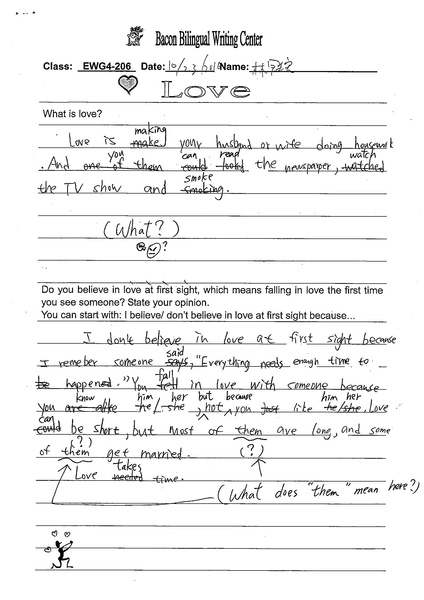 Bacon Bilingual Writing Center
Class: EWG4-206 Date: 10/23/ Name:
Love
What is love?
making
Love is make your husband or wife doing housework
you can read watch
. And one of them could look the newspaper, watched
smoke
the TV show and smoking.
(What?)
?
Do you believe in love at first sight, which means falling in love the first time
you see someone? State your opinion.
You can start with: I believe/ don't believe in love at first sight because...
I don't believe in love at first sight because
said
I remeber someone says, "Everything needs enough time to
fall
be happened." You fell in love with someone because
know him her but because him her
you are alike he/she, not you just like he/she. Love
can
could be short, but most of them are long, and some
(?)
of them get married. (?)
takes
Love needed time.
(What does "them" mean here?)